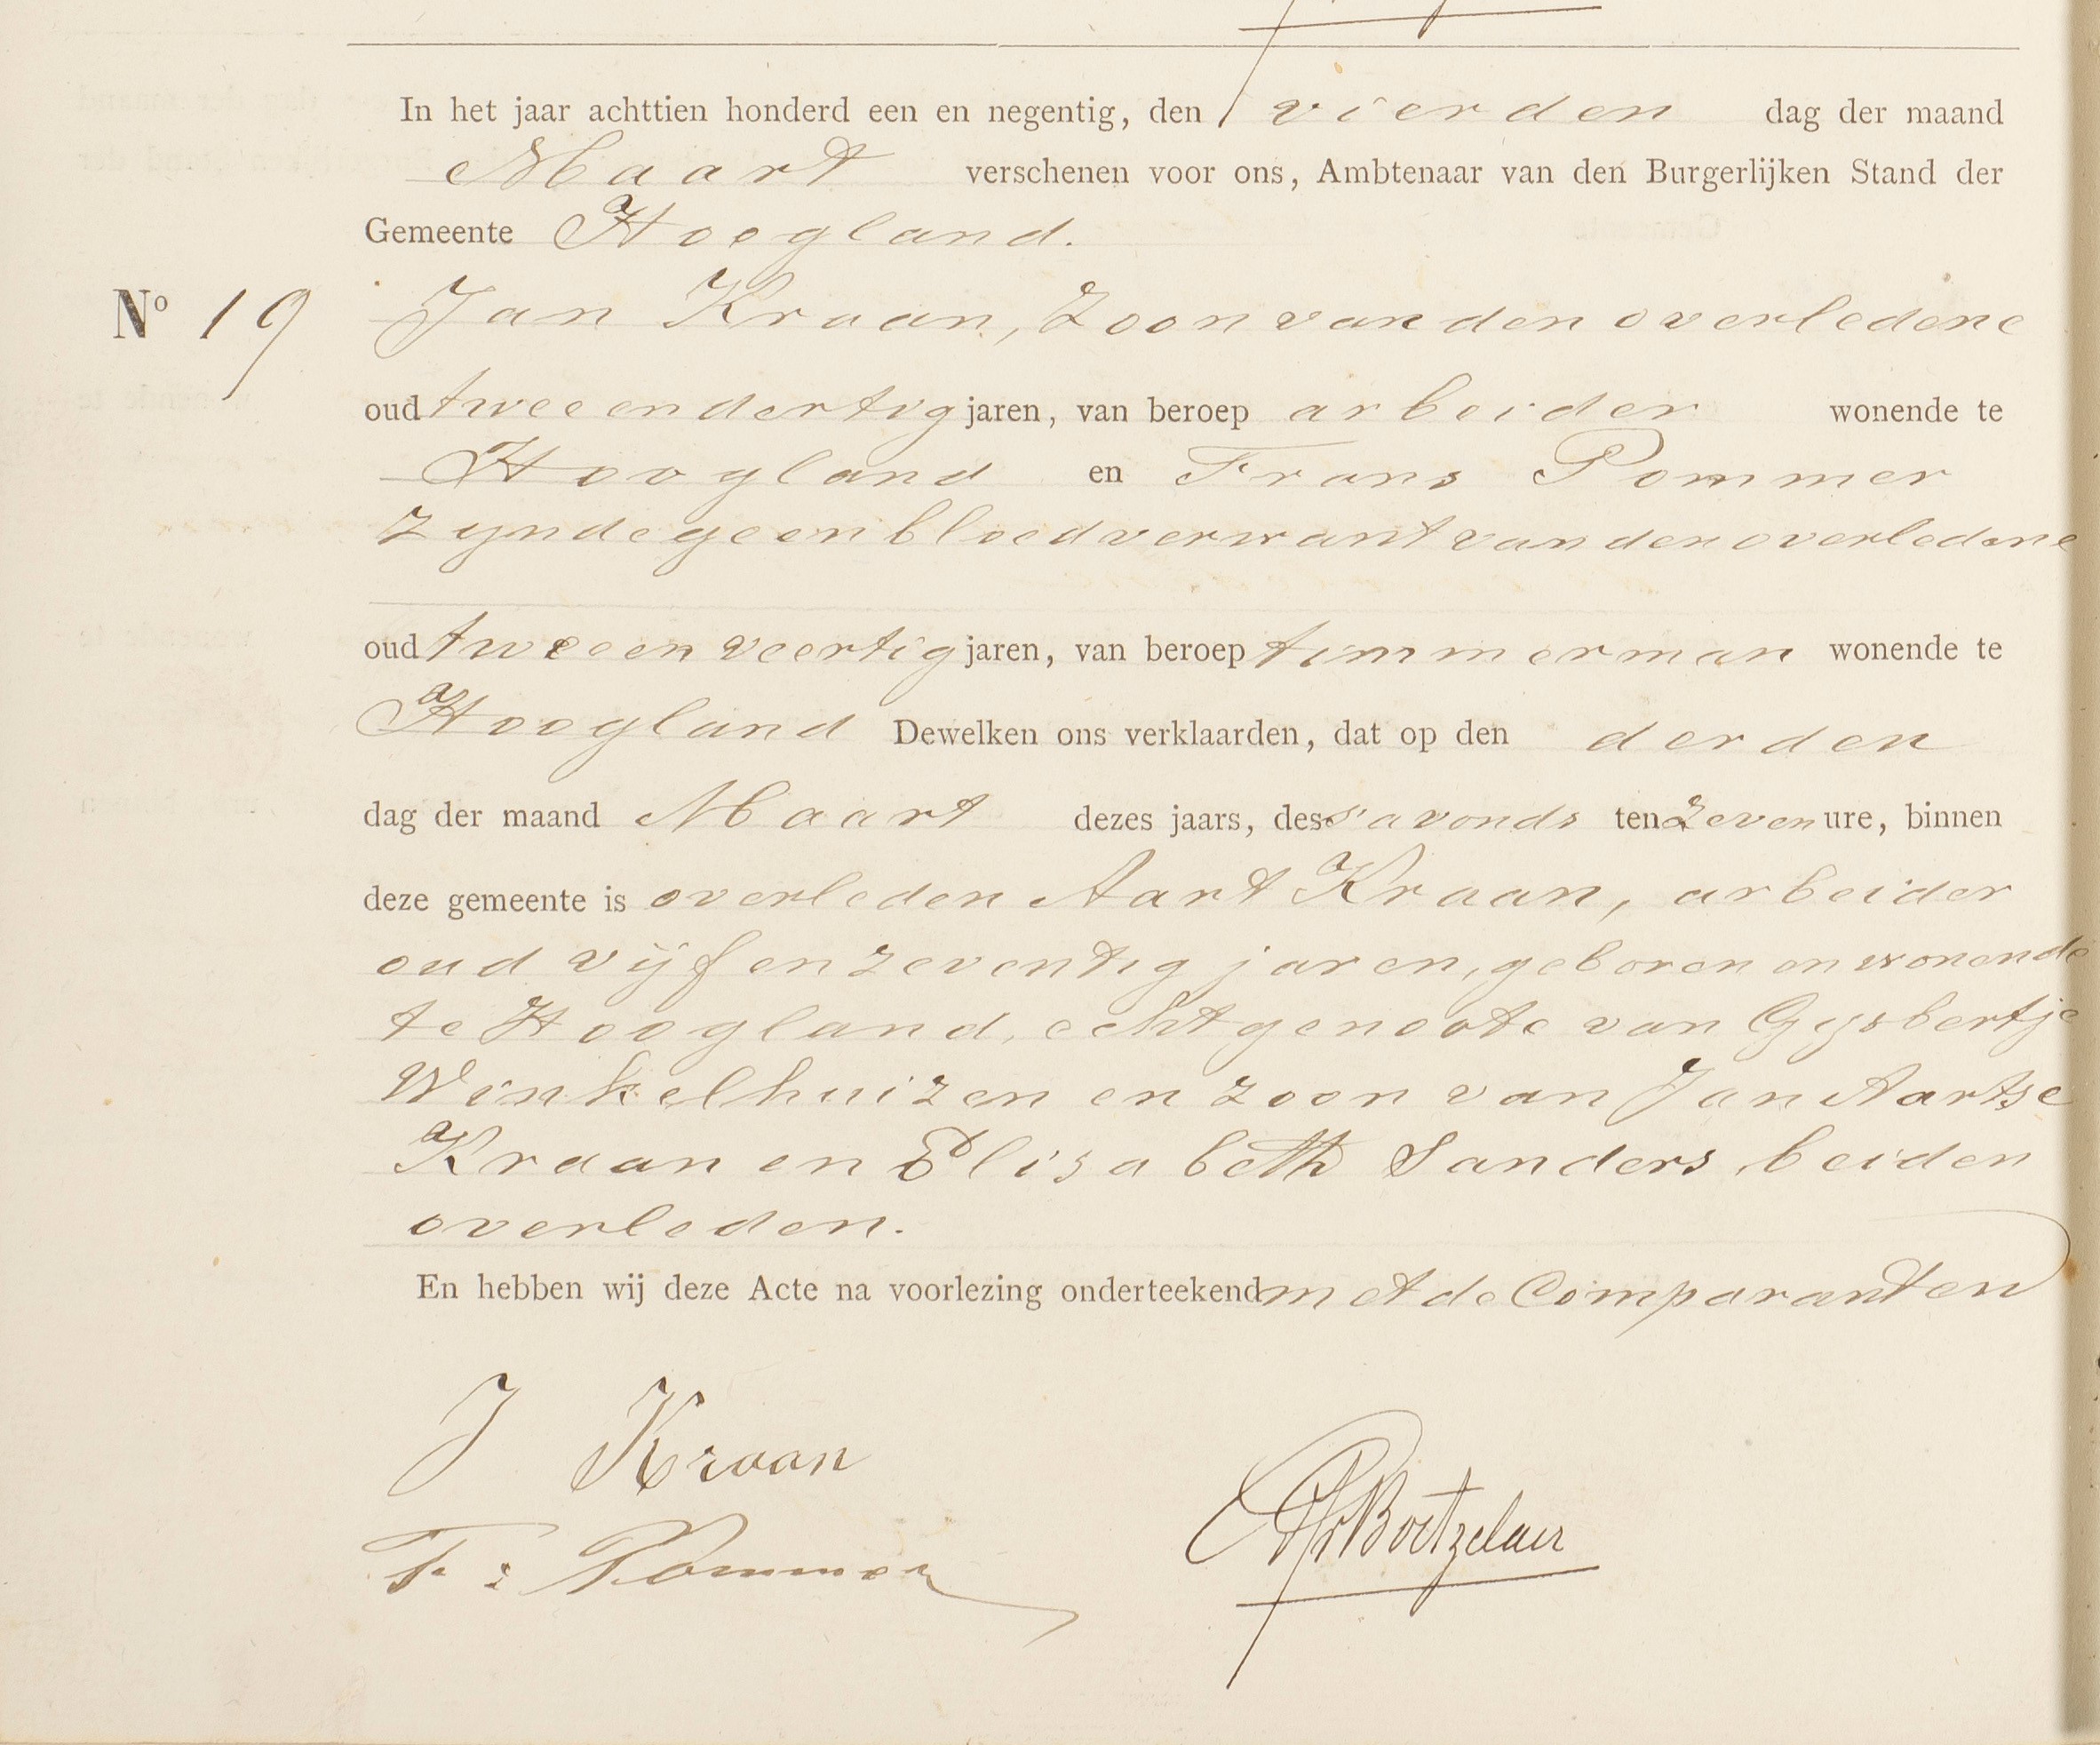 In het jaar achttien honderd een en negentig, den vierden dag der maand
Maart verschenen voor ons, Ambtenaar van den Burgerlijken Stand der
Gemeente Hoogland.
Nº 19 Jan Kraan, Zoon van den overledene
oud twee en dertig jaren, van beroep arbeider wonende te
Hoogland en Frans Pommer
zynde geen bloedverwant van den overledene
oud twee en veertig jaren, van beroep timmerman wonende te
Hoogland Dewelken ons verklaarden, dat op den derden
dag der maand Maart dezes jaars, des s'avonds ten zeven ure, binnen
deze gemeente is overleden Aart Kraan, arbeider
oud vijf en zeventig jaren, geboren en wonende
te Hoogland, echtgenoote van Gysbertje
Winkelhuizen en zoon van Jan Aartse
Kraan en Elisabeth Sanders, beiden
overleden.
En hebben wij deze Acte na voorlezing onderteekend met de Comparanten
J Kraan
F: Pommer
Boetzelaer